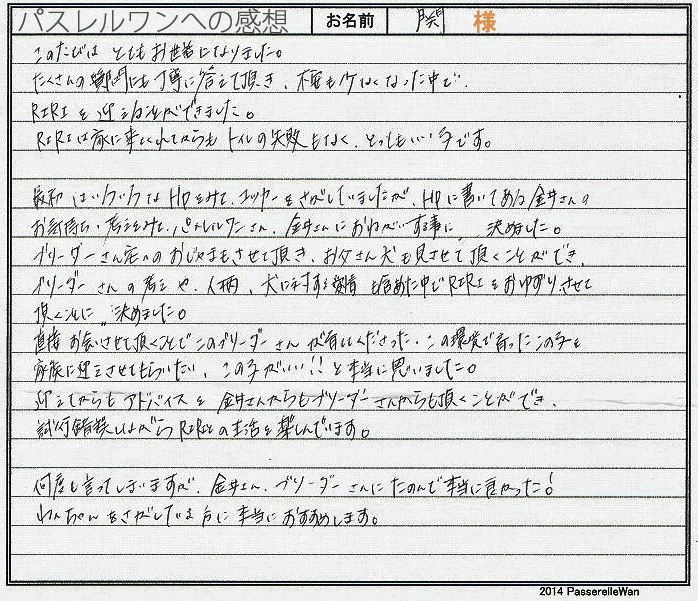 パスレルワンへの感想 お名前 関 様
このたびは とてもお世話になりました。
たくさんの質問にも丁寧に答えて頂き、不安も少なくなった中で、
RIRIを迎えることができました。
RIRIは家に来てくれてからもトイレの失敗もなく、とってもいい子です。
最初はいろいろなHPをみて、ヨッキーをさがしていましたが、HPに書いてある金井さんの
お気持ち・考えをみて、パスレルワンさん、金井さんにおねがいする事に、決めました。
ブリーダーさん宅へのおじゃまもさせて頂き、お父さん犬も見させて頂くことができ、
ブリーダーさんの考えや、人柄、犬に対する愛情も含めた中でRIRIをおゆずりさせて
頂くことに、決めました。
直接お会いさせて頂くことでこのブリーダーさんが育ててくださった、この環境で育ったこの子を
家族に迎えさせてもらいたい、この子がいい!!と本当に思いました。
迎えてからもアドバイスを金井さんからもブリーダーさんからも頂くことができ、
試行錯誤しながらRIRIとの生活を楽しんでいます。
何度も言ってしまいますが、金井さん、ブリーダーさんにたのんで本当に良かった!
わんちゃんをさがしている方に本当におすすめします。
2014 PasserelleWan